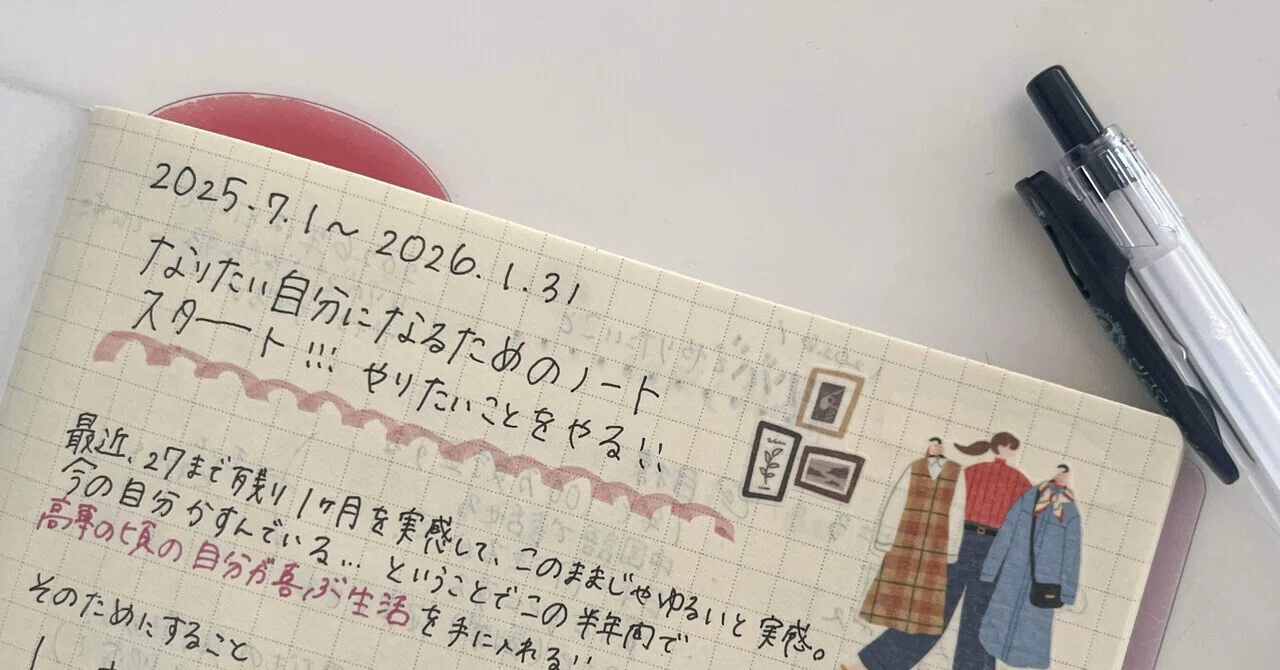 2025.7.1〜2026.1.31
なりたい自分になるためのノート
スタート!!! やりたいことをやる!!
最近、27まで残り1ヶ月を実感して、このままじゃゆるいと実感。
今の自分かすんでいる... ということでこの半年間で
高専の頃の自分が喜ぶ生活を手に入れる!!
そのためにすること